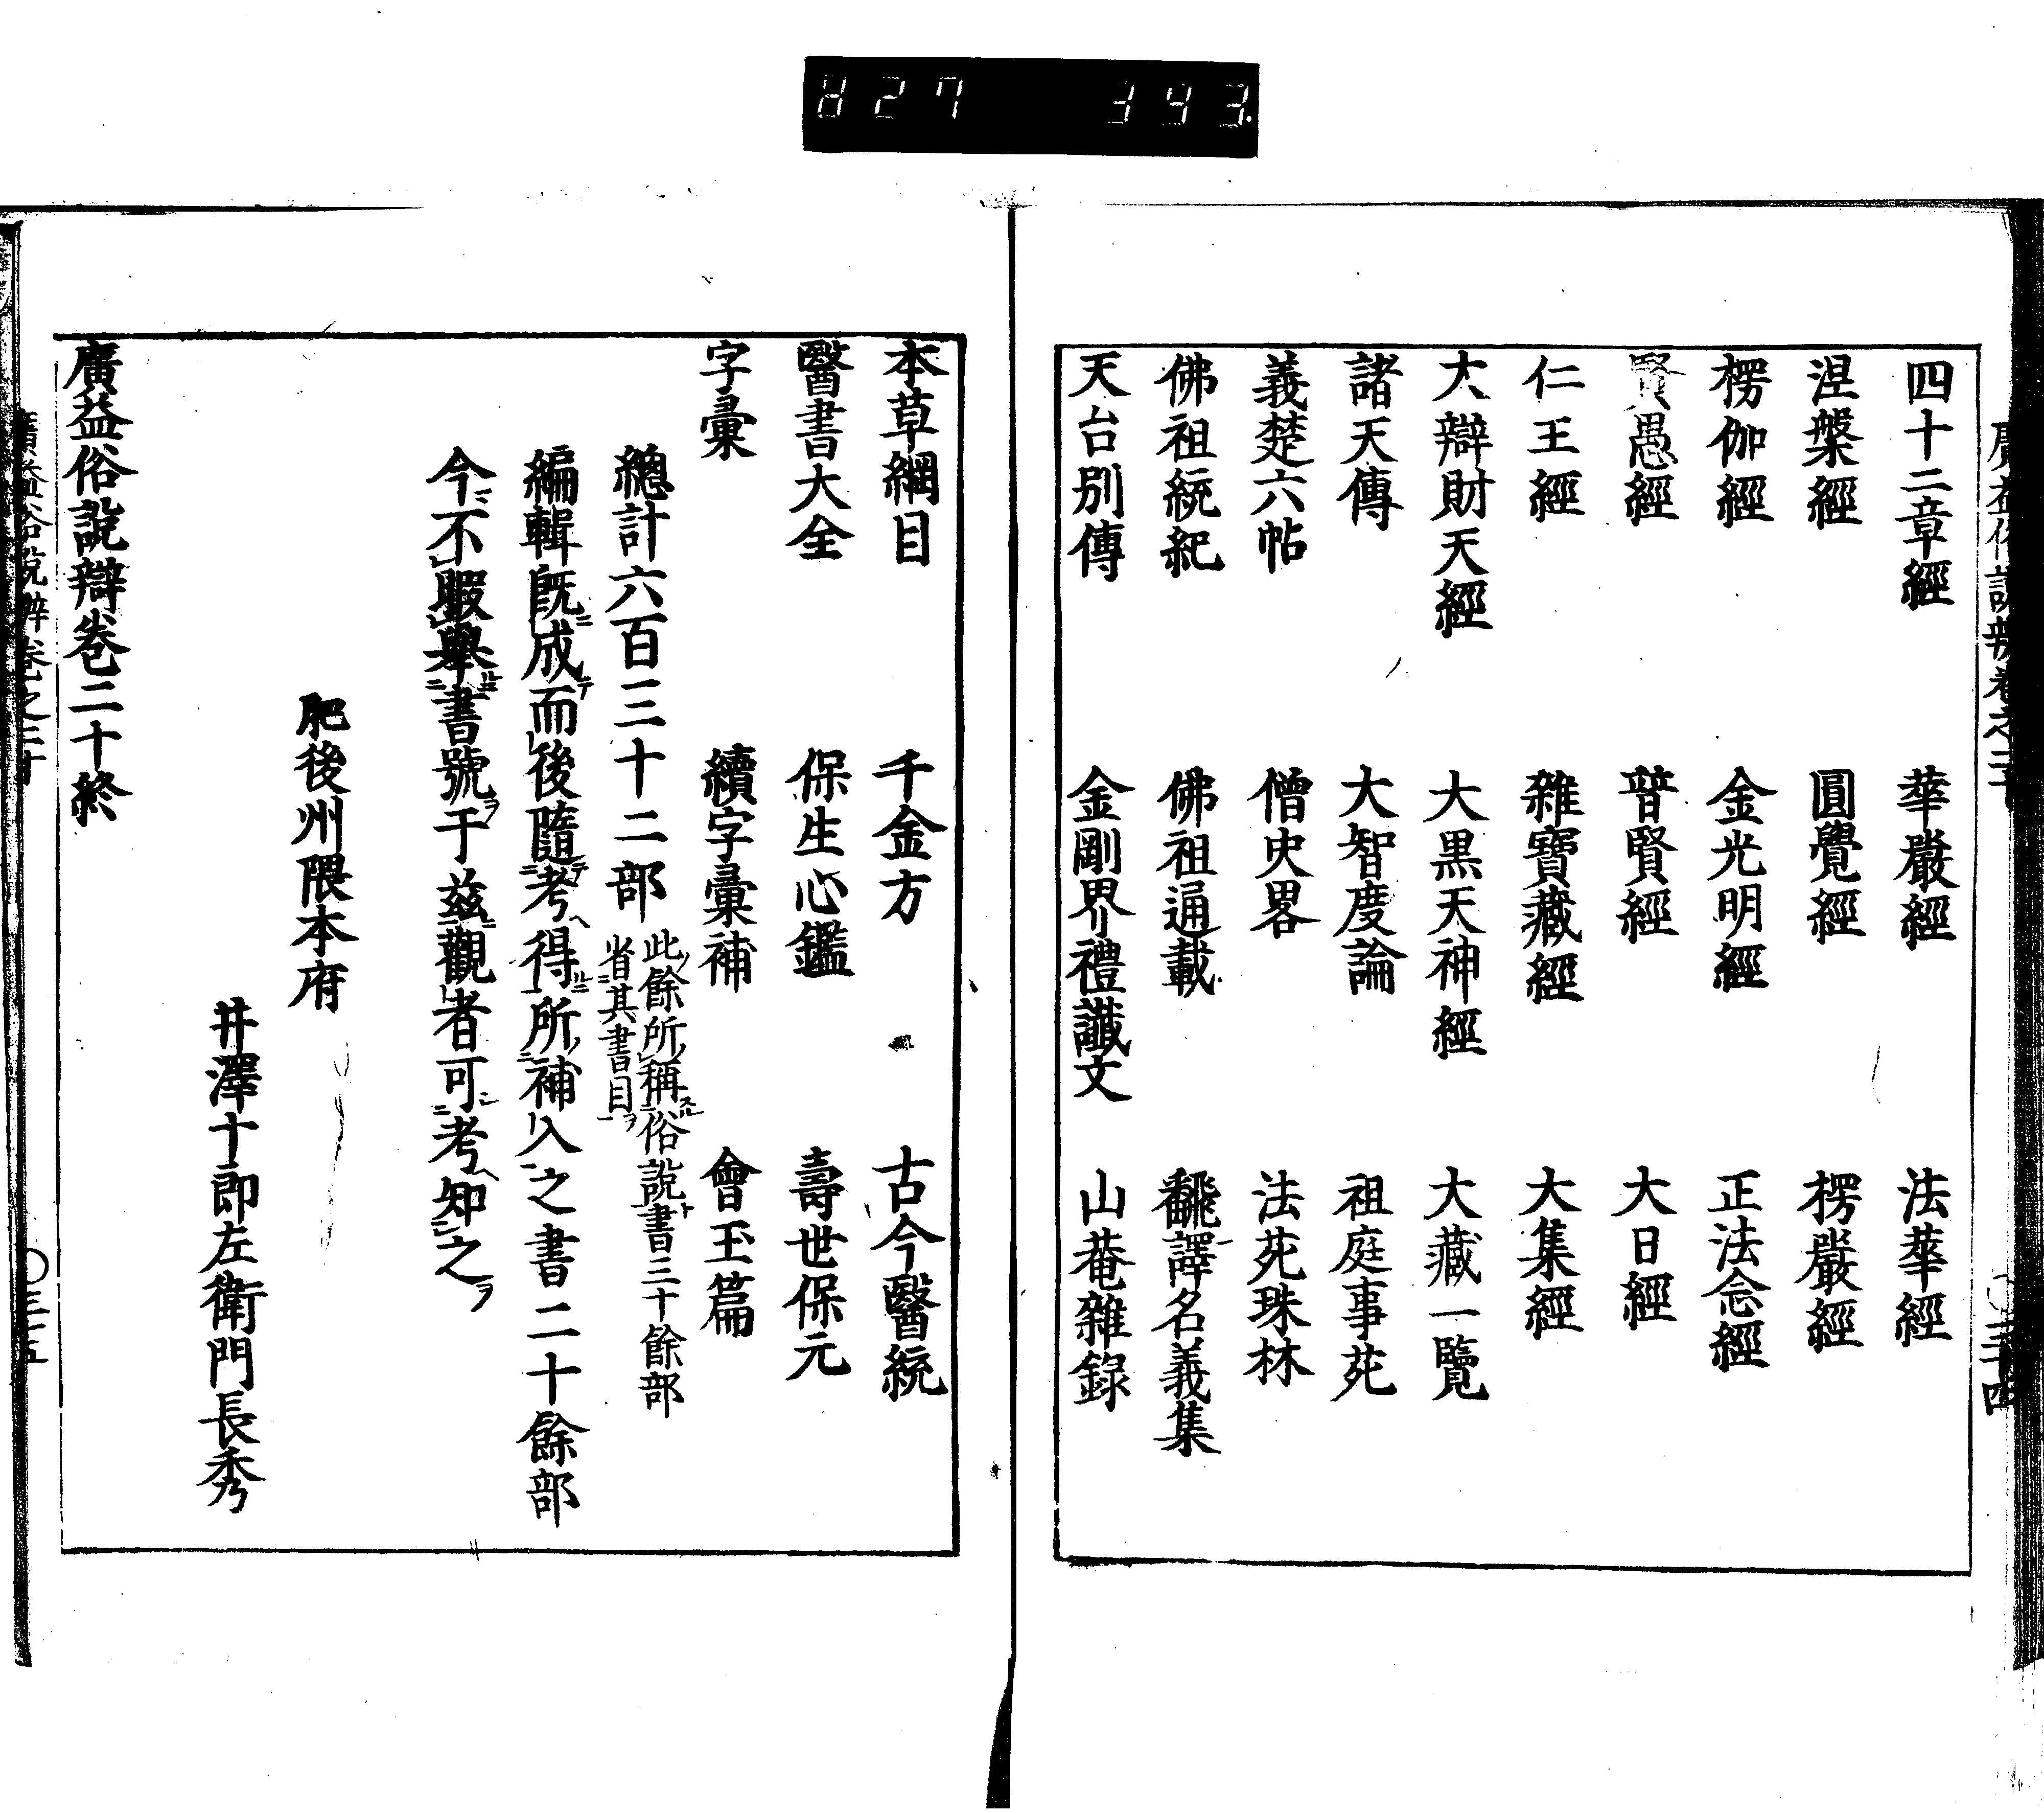 827 343
四十二章經 華嚴經 法華經
涅槃經 圓覺經 楞嚴經
楞伽經 金光明經 正法念經
賢愚經 普賢經 大日經
仁王經 雜寶藏經 大集經
大辯財天經 大黒天神經 大藏一覽
諸天傳 大智度論 祖庭事苑
義楚六帖 僧史畧 法苑珠林
佛祖統紀 佛祖通載 飜譯名義集
天台別傳 金剛界禮讖文 山菴雜錄
本草綱目 千金方 古今醫統
醫書大全 保生心鑑 壽世保元
字彙 續字彙補 會玉篇
總計六百三十二部 此餘所稱俗說書三十餘部
省其書目
編輯既成而後隨考得所補入之書二十餘部
今不暇舉書號于茲觀者可考知之
肥後州隈本府
井澤十郎左衛門長秀
廣益俗說辯卷二十終
廣益俗說辯卷之二十 三十五